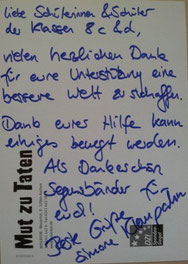 liebe Schülerinnen & Schüler
der Klassen 8 c & d,
vielen herzlichen Dank
für eure Unterstützung eine
bessere Welt zu schaffen.
Dank eurer Hilfe kann
einiges bewegt werden.
Als Dankeschön
Segensbänder für
euch!
Beste Grüße
Simone
Mut zu Taten
DZI